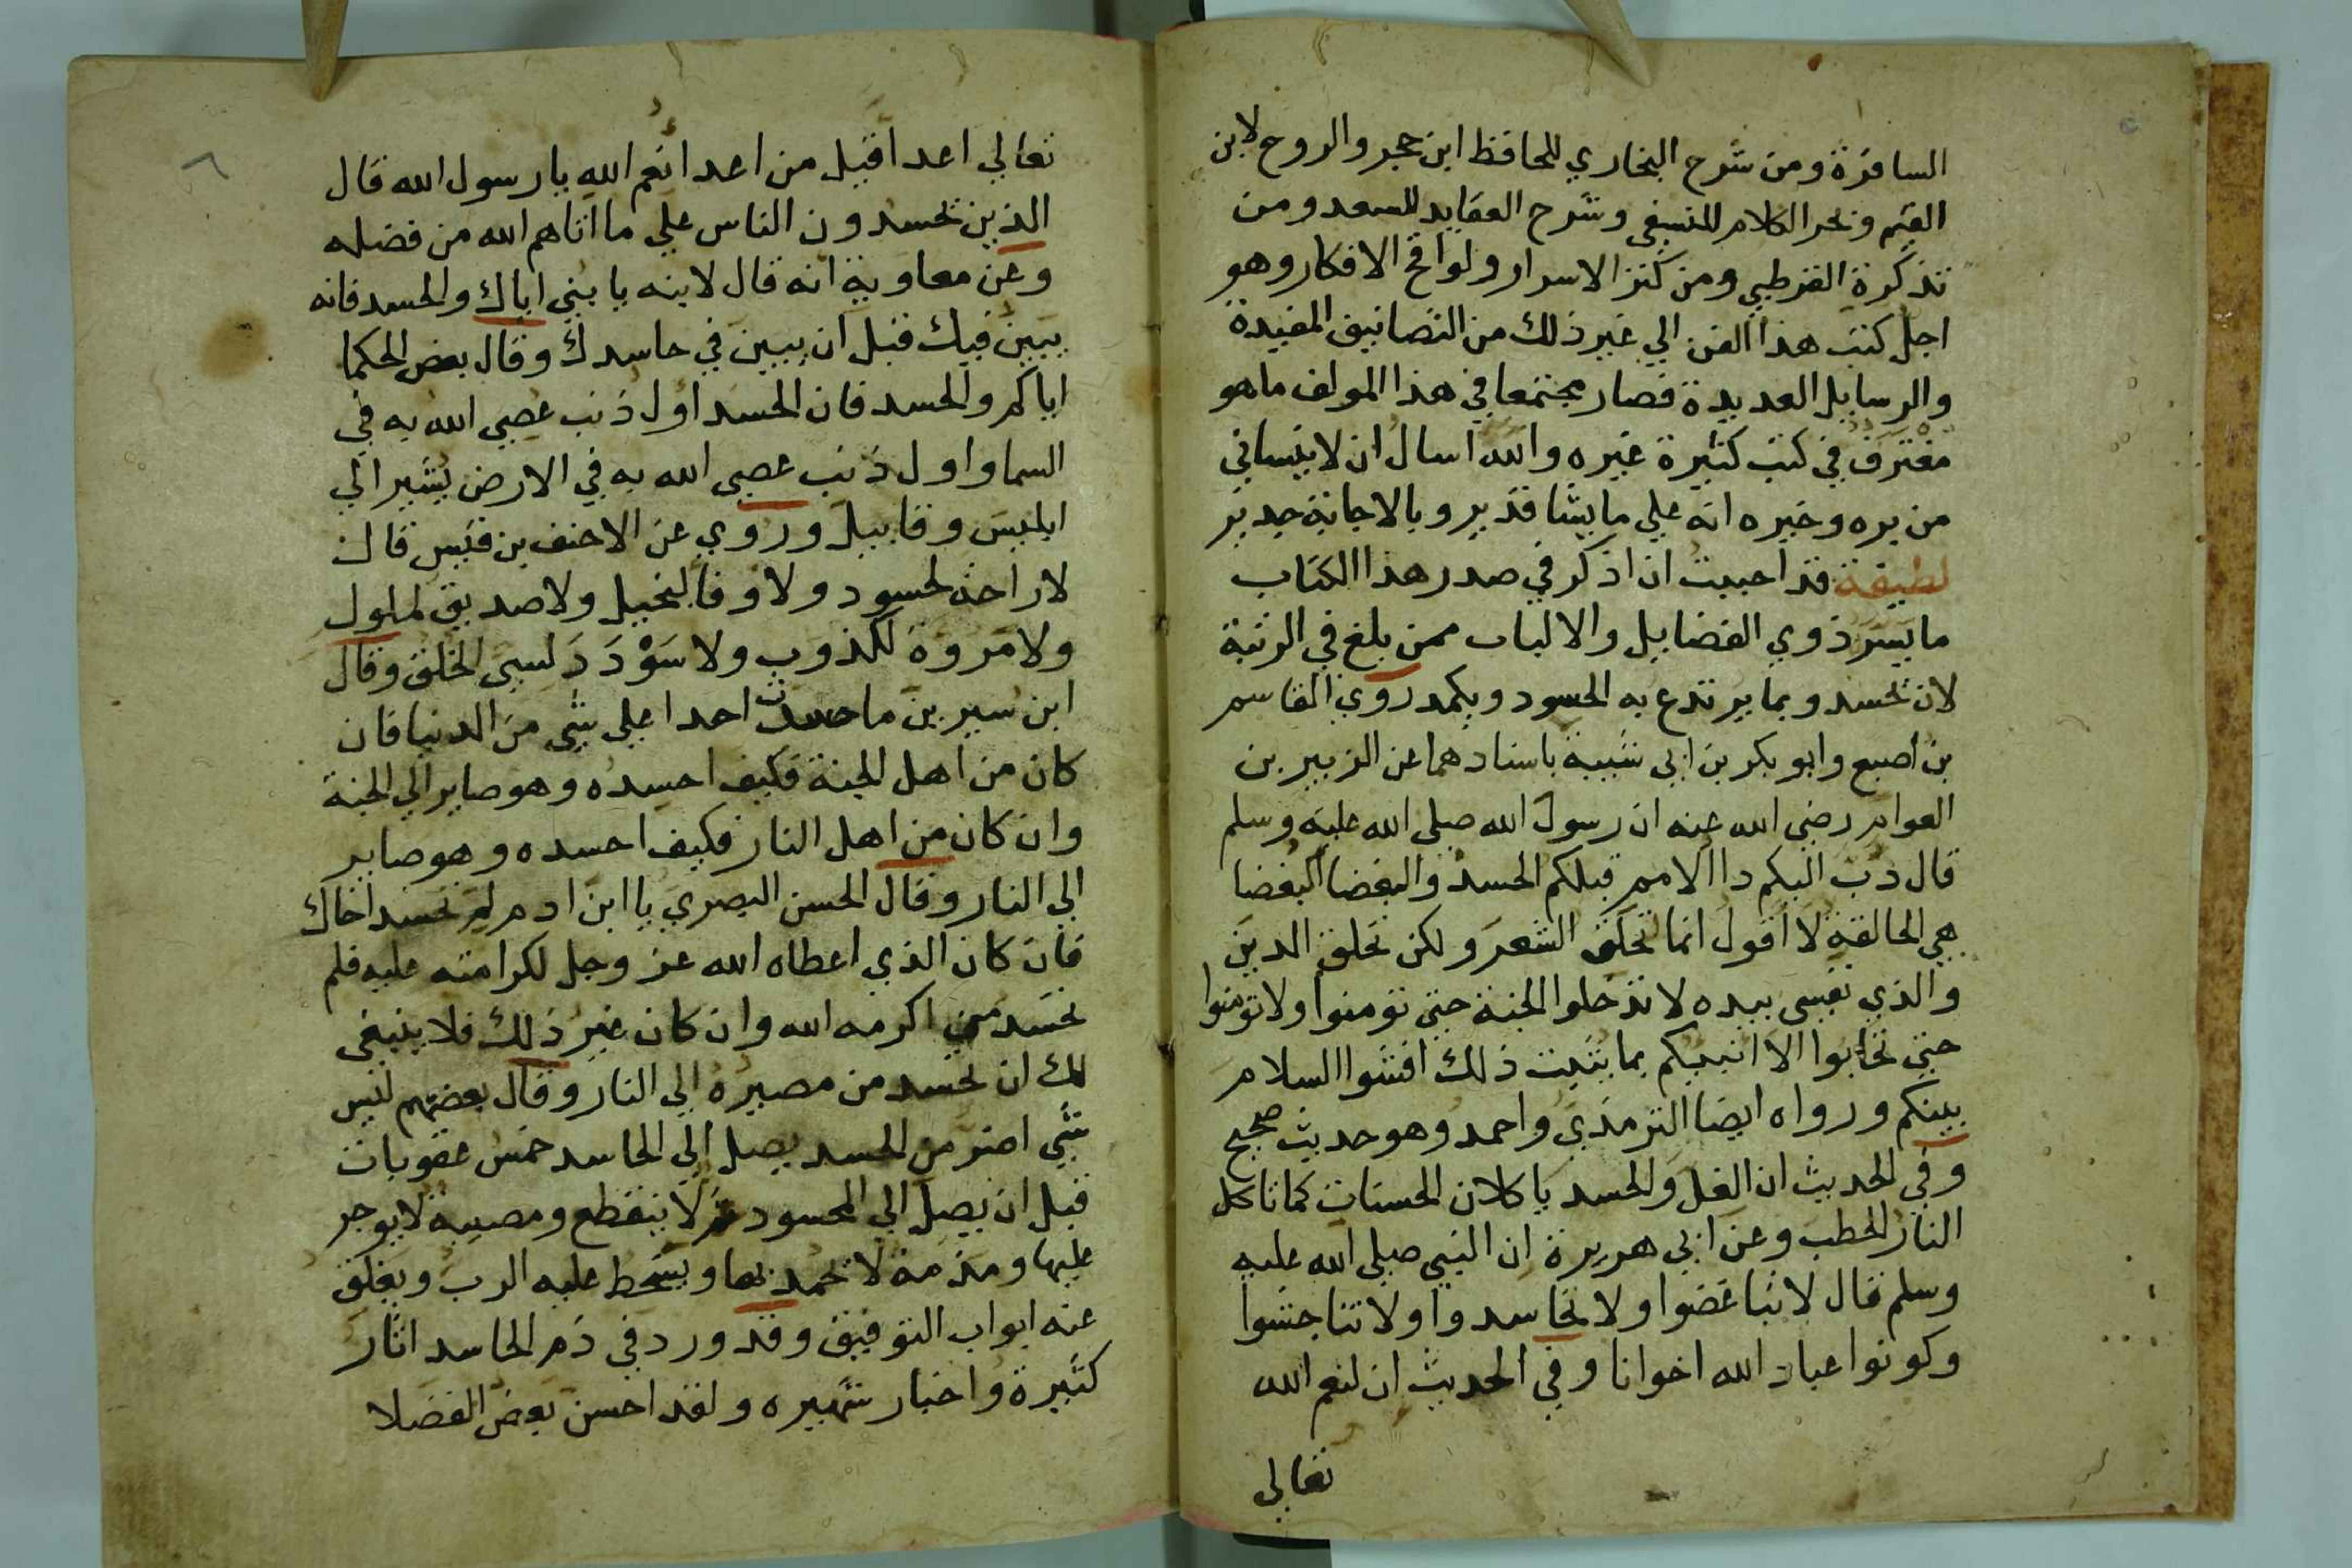 السافرة ومن شرح البخاري للحافظ ابن حجر والروح لابن
القيم وبحر الكلام للنسفي وشرح العقايد للسعد ومن
تذكرة القرطبي ومن كنز الاسرار ولواقح الافكار وهو
اجل كتب هذا الفن الي غير ذلك من التصانيف المفيدة
والرسايل العديدة فصار مجتمعا في هذا المولف ما هو
مفترق في كتب كثيرة غيره والله اسال ان لا ينساني
من بره وخيره انه علي ما يشا قدير وبالاجابة جدير
لطيفة قد احببت ان اذكر في صدر هذا الكتاب
ما يسر ذوي الفضايل والالباب ممن بلغ في الرتبة
لان تحسد وبما يرتدع به الحسود ويكمد روي القاسم
بن اصبع وابو بكر بن ابي شيبة باسنادهما عن الزبير بن
العوام رضي الله عنه ان رسول الله صلى الله عليه وسلم
قال دب اليكم دا الامم قبلكم الحسد والبغضا البغضا
هي الحالقة لا اقول انما تحلق الشعر ولكن تحلق الدين
والذي نفسي بيده لا تدخلوا الجنة حتي تومنوا ولا تومنوا
حتي تحابوا الا انبيكم بما يثبت ذلك افشوا السلام
بينكم ورواه ايضا الترمذي واحمد وهو حديث صحيح
وفي الحديث ان الغل والحسد ياكلان الحسنات كما تاكل
النار الحطب وعن ابي هريرة ان النبي صلى الله عليه
وسلم قال لا تباغضوا ولا تحاسدوا ولا تناجشوا
وكونوا عباد الله اخوانا وفي الحديث ان لنعم الله
تعالي
تعالي اعدا قيل من اعدا نعم الله يا رسول الله قال
الذين يحسدون الناس علي ما اتاهم الله من فضله
وعن معاوية انه قال لابنه يا بني اياك والحسد فانه
يبين فيك قبل ان يبين في حاسدك وقال بعض الحكما
اياكم والحسد فان الحسد اول ذنب عصي الله به في
السما واول ذنب عصي الله به في الارض يشير الي
ابليس وقابيل وروي عن الاحنف بن قيس قال
لا راحة لحسود ولا وفا لبخيل ولا صديق لملول
ولا مروة لكذوب ولا سؤدد لسيي الخلق وقال
ابن سيرين ما حسدت احدا علي شي من الدنيا فان
كان من اهل الجنة فكيف احسده وهو صاير الي الجنة
وان كان من اهل النار فكيف احسده وهو صاير
الي النار وقال الحسن البصري يا ابن ادم لم تحسد اخاك
فان كان الذي اعطاه الله عز وجل لكرامته عليه فلم
تحسد من اكرمه الله وان كان غير ذلك فلا ينبغي
لك ان تحسد من مصيره الي النار وقال بعضهم ليس
شي اضر من الحسد يصل الي الحاسد خمس عقوبات
قبل ان يصل الي المحسود غم لا ينقطع ومصيبة لا يوجر
عليها ومذمة لا تحمد بها ويسخط عليه الرب ويغلق
عنه ابواب التوفيق وقد ورد في ذم الحاسد اثار
كثيرة واخبار شهيره ولقد احسن بعض الفضلا